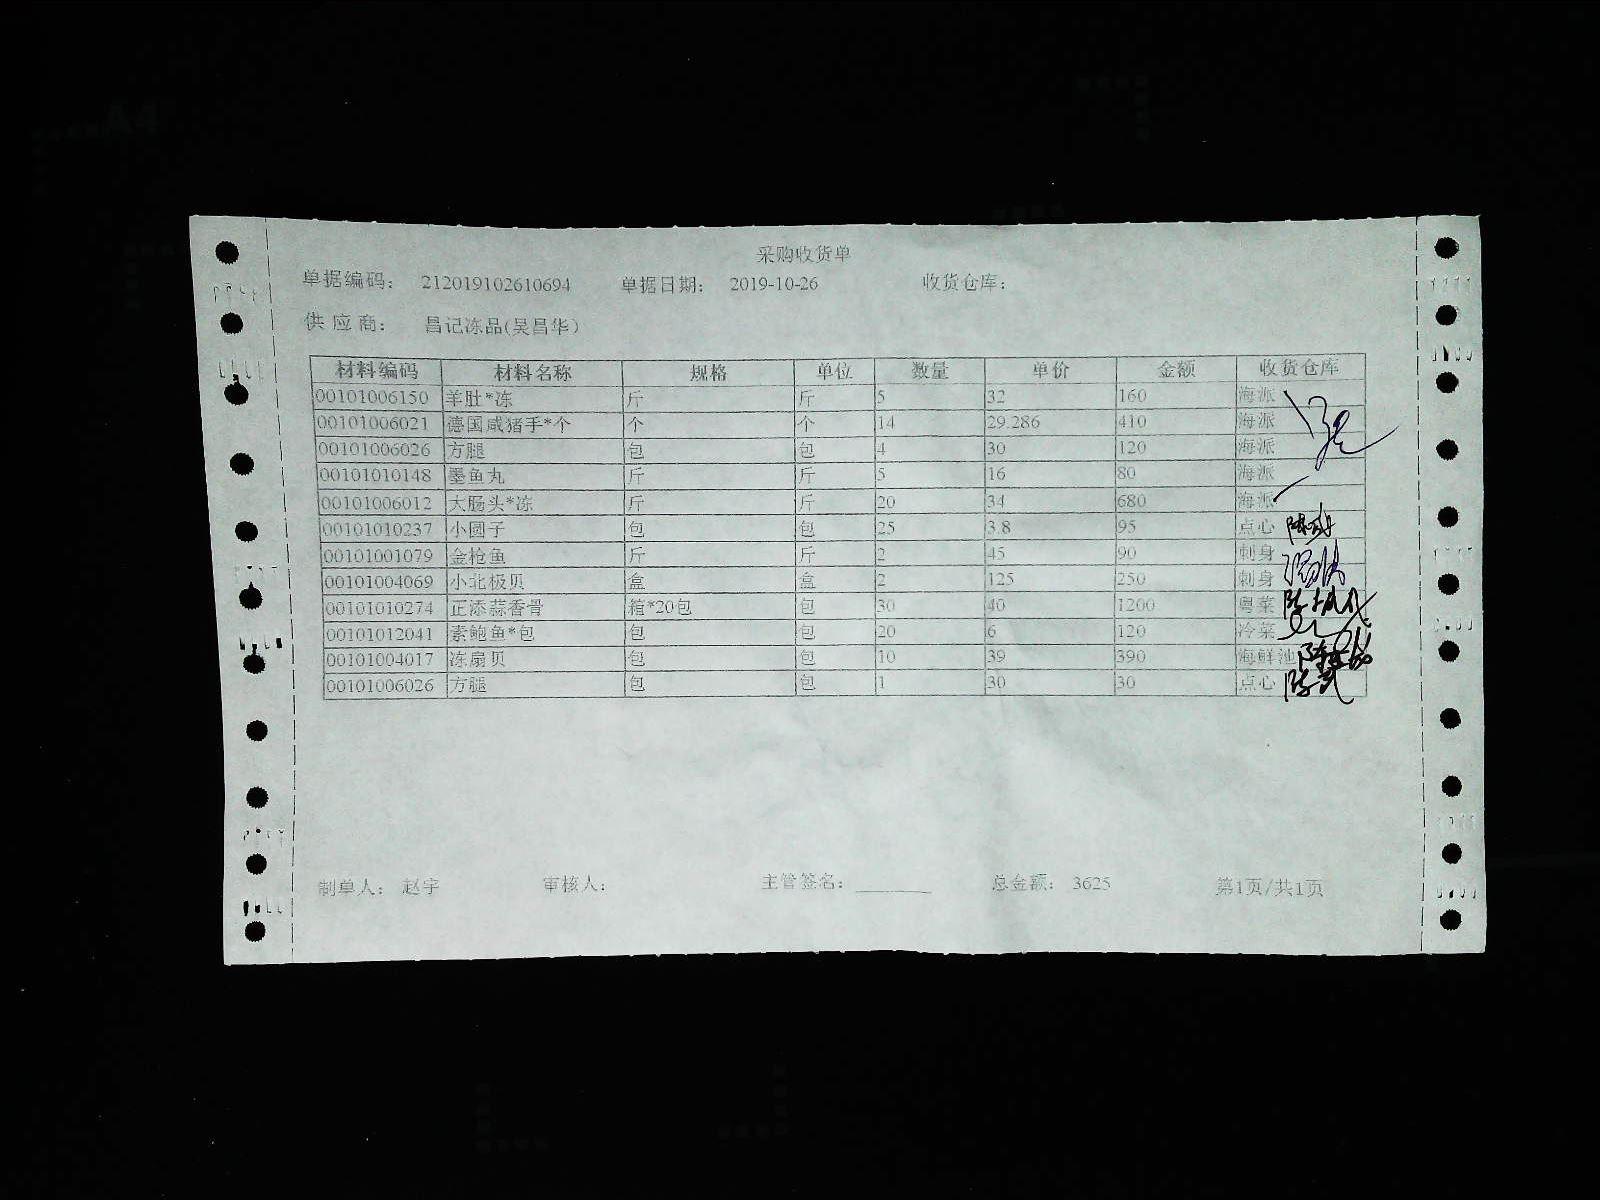 采购收货单
单据编码: 212019102610694 单据日期: 2019-10-26 收货仓库:
供应商: 昌记冻品(吴昌华)
材料编码 材料名称 规格 单位 数量 单价 金额 收货仓库
00101006150 羊肚*冻 斤 斤 5 32 160 海派
00101006021 德国咸猪手*个 个 个 14 29.286 410 海派
00101006026 方腿 包 包 4 30 120 海派
00101010148 墨鱼丸 斤 斤 5 16 80 海派
00101006012 大肠头*冻 斤 斤 20 34 680 海派
00101010237 小圆子 包 包 25 3.8 95 点心
00101001079 金枪鱼 斤 斤 2 45 90 刺身
00101004069 小北极贝 盒 盒 2 125 250 刺身
00101010274 正添蒜香骨 箱*20包 包 30 40 1200 粤菜
00101012041 素鲍鱼*包 包 包 20 6 120 冷菜
00101004017 冻扇贝 包 包 10 39 390 海鲜池
00101006026 方腿 包 包 1 30 30 点心
制单人: 赵宇 审核人: 主管签名: 总金额: 3625 第1页/共1页